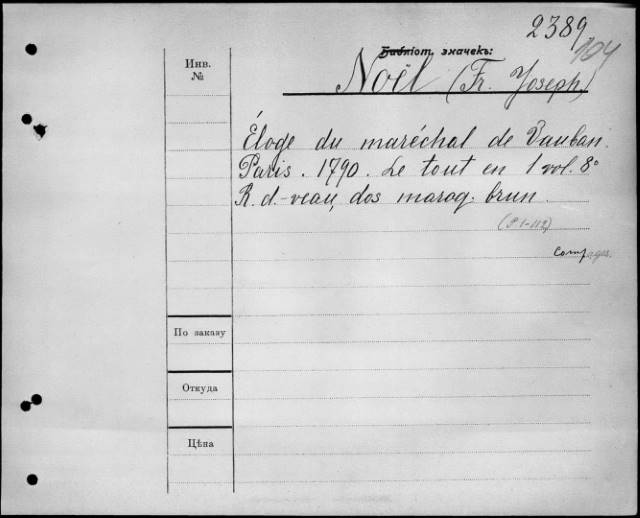 2389
104
Библіот. значекъ:
Инв.
№
Noël (Fr. Joseph)
Éloge du maréchal de Vauban.
Paris. 1790. Le tout en 1 vol. 8°
R. d.-veau, dos maroq. brun.
(P 1-112)
По заказу
Откуда
Цѣна